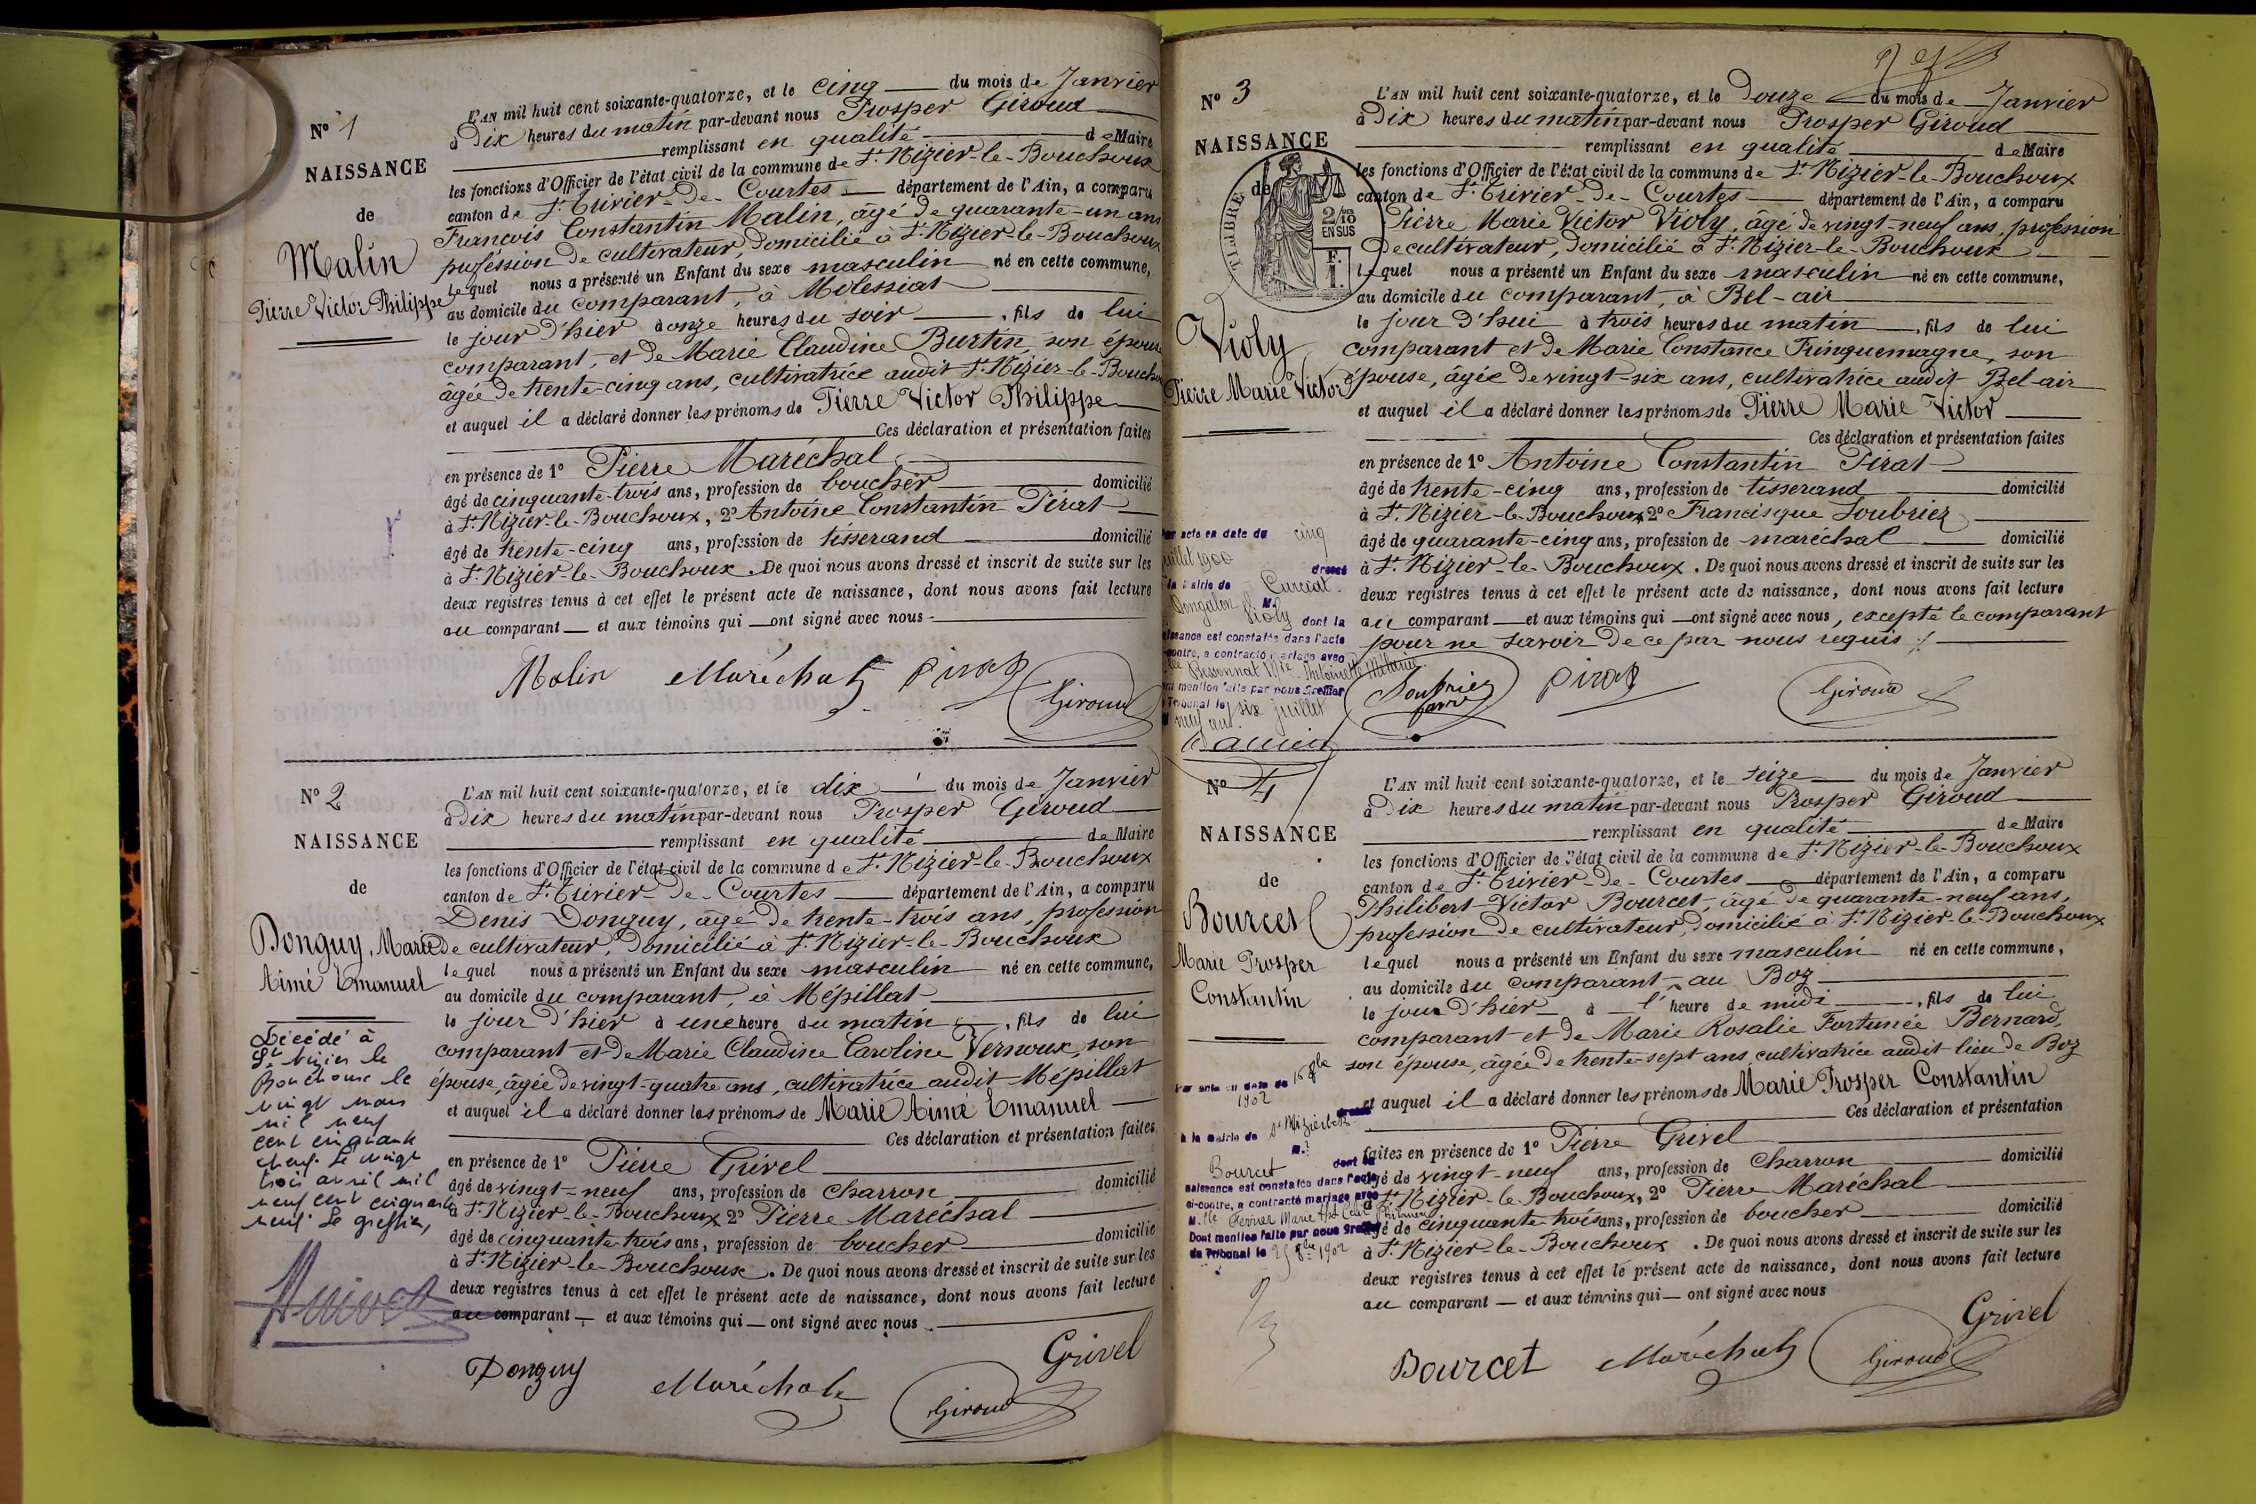 N° 1
NAISSANCE
de
Malin
Pierre Victor Philippe
L'AN mil huit cent soixante-quatorze, et le cinq du mois de Janvier
à Dix heures du matin par-devant nous Prosper Giroud
remplissant en qualité de Maire
les fonctions d'Officier de l'état civil de la commune de St. Nizier-le-Bouchoux
canton de St. Trivier-de-Courtes département de l'Ain, a comparu
François Constantin Malin, âgé de quarante-un ans
profession de cultivateur, domicilié à St. Nizier-le-Bouchoux
lequel nous a présenté un Enfant du sexe masculin né en cette commune,
au domicile du comparant, à Molessiat
le jour d'hier à onze heures du soir, fils de lui
comparant, et de Marie Claudine Burtin, son épouse
âgée de trente-cinq ans, cultivatrice audit St. Nizier-le-Bouchoux
et auquel il a déclaré donner les prénoms de Pierre Victor Philippe
Ces déclaration et présentation faites
en présence de 1° Pierre Maréchal
âgé de cinquante-trois ans, profession de boucher domicilié
à St. Nizier-le-Bouchoux, 2° Antoine Constantin Pirat
âgé de trente-cinq ans, profession de tisserand domicilié
à St. Nizier-le-Bouchoux. De quoi nous avons dressé et inscrit de suite sur les
deux registres tenus à cet effet le présent acte de naissance, dont nous avons fait lecture
au comparant et aux témoins qui ont signé avec nous
Malin Maréchal Pirat Giroud
N° 2
NAISSANCE
de
Donguy, Marie
Aimé Emanuel
Décédé à
St Nizier le
Bouchoux le
vingt mars
mil neuf
cent cinquante
neuf. Le vingt
trois avril mil
neuf cent cinquante
neuf. Le greffier,
L'AN mil huit cent soixante-quatorze, et le dix du mois de Janvier
à Dix heures du matin par-devant nous Prosper Giroud
remplissant en qualité de Maire
les fonctions d'Officier de l'état civil de la commune de St. Nizier-le-Bouchoux
canton de St. Trivier-de-Courtes département de l'Ain, a comparu
Denis Donguy, âgé de trente-trois ans, profession
de cultivateur, domicilié à St. Nizier-le-Bouchoux
lequel nous a présenté un Enfant du sexe masculin né en cette commune,
au domicile du comparant, à Mépillat
le jour d'hier à une heure du matin, fils de lui
comparant et de Marie Claudine Caroline Vernoux, son
épouse, âgée de vingt-quatre ans, cultivatrice audit Mépillat
et auquel il a déclaré donner les prénoms de Marie Aimé Emanuel
Ces déclaration et présentation faites
en présence de 1° Pierre Grivel
âgé de vingt-neuf ans, profession de Charron domicilié
à St. Nizier-le-Bouchoux, 2° Pierre Maréchal
âgé de cinquante-trois ans, profession de boucher domicilié
à St. Nizier-le-Bouchoux. De quoi nous avons dressé et inscrit de suite sur les
deux registres tenus à cet effet le présent acte de naissance, dont nous avons fait lecture
au comparant et aux témoins qui ont signé avec nous
Grivel
Donguy Maréchal Giroud
N° 3
NAISSANCE
de
TIMBRE
2/10 EN SUS
F. 1.
Violy
Pierre Marie Victor
Par acte en date du cinq
juillet 1900 dressé
à la Mairie de Curciat-
Dongalon M.
Violy dont la
naissance est constatée dans l'acte
ci-contre, a contracté mariage avec
Mlle Bessonnat Mie Antoinette
Dont mention faite par nous Greffier
du Tribunal le six juillet
mil neuf cent
L'AN mil huit cent soixante-quatorze, et le Douze du mois de Janvier
à Dix heures du matin par-devant nous Prosper Giroud
remplissant en qualité de Maire
les fonctions d'Officier de l'état civil de la commune de St. Nizier-le-Bouchoux
canton de St. Trivier-de-Courtes département de l'Ain, a comparu
Pierre Marie Victor Violy, âgé de vingt-neuf ans, profession
de cultivateur, domicilié à St. Nizier-le-Bouchoux
lequel nous a présenté un Enfant du sexe masculin né en cette commune,
au domicile du comparant, à Bel-air
le jour d'hui à trois heures du matin, fils de lui
comparant et de Marie Constance Fringuemagne, son
épouse, âgée de vingt-six ans, cultivatrice audit Bel-air
et auquel il a déclaré donner les prénoms de Pierre Marie Victor
Ces déclaration et présentation faites
en présence de 1° Antoine Constantin Pirat
âgé de trente-cinq ans, profession de tisserand domicilié
à St. Nizier-le-Bouchoux, 2° Francisque Soubriez
âgé de quarante-cinq ans, profession de maréchal domicilié
à St. Nizier-le-Bouchoux. De quoi nous avons dressé et inscrit de suite sur les
deux registres tenus à cet effet le présent acte de naissance, dont nous avons fait lecture
au comparant et aux témoins qui ont signé avec nous, excepté le comparant
pour ne savoir de ce par nous requis
Soubriez Pirat Giroud
N° 4
NAISSANCE
de
Bourcet
Marie Prosper
Constantin
Par acte en date du 16 8bre
1902
dressé
à la Mairie de St Nizier le B.
M.
Bourcet dont la
naissance est constatée dans l'acte
ci-contre, a contracté mariage avec
Mlle Ferrier Marie
Dont mention faite par nous Greffier
du Tribunal le 25 8bre 1902
L'AN mil huit cent soixante-quatorze, et le seize du mois de Janvier
à Dix heures du matin par-devant nous Prosper Giroud
remplissant en qualité de Maire
les fonctions d'Officier de l'état civil de la commune de St. Nizier-le-Bouchoux
canton de St. Trivier-de-Courtes département de l'Ain, a comparu
Philibert Victor Bourcet, âgé de quarante-neuf ans,
profession de cultivateur, domicilié à St. Nizier-le-Bouchoux
lequel nous a présenté un Enfant du sexe masculin né en cette commune,
au domicile du comparant, au Boz
le jour d'hier à l'heure de midi, fils de lui
comparant et de Marie Rosalie Fortunée Bernard,
son épouse, âgée de trente-sept ans, cultivatrice audit lieu de Boz
et auquel il a déclaré donner les prénoms de Marie Prosper Constantin
Ces déclaration et présentation
faites en présence de 1° Pierre Grivel
âgé de vingt-neuf ans, profession de Charron domicilié
à St. Nizier-le-Bouchoux, 2° Pierre Maréchal
âgé de cinquante-trois ans, profession de boucher domicilié
à St. Nizier-le-Bouchoux. De quoi nous avons dressé et inscrit de suite sur les
deux registres tenus à cet effet le présent acte de naissance, dont nous avons fait lecture
au comparant et aux témoins qui ont signé avec nous
Grivel
Bourcet Maréchal Giroud